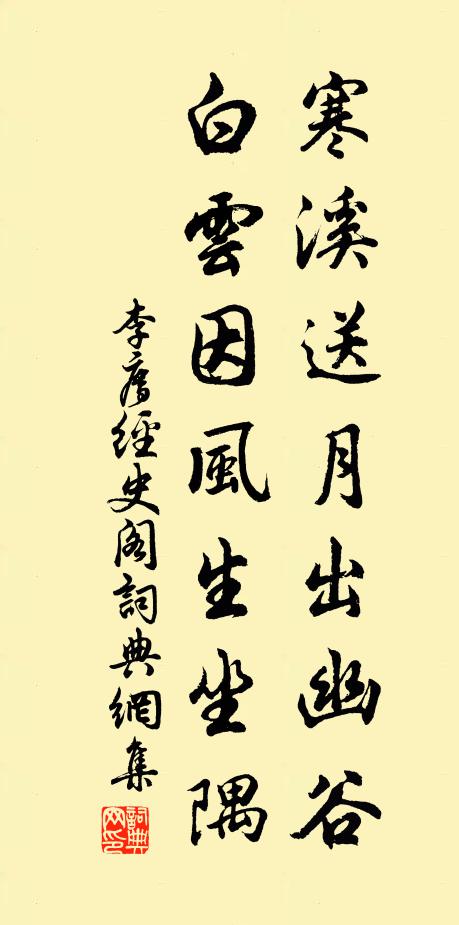 寒溪送月出幽谷
白雲因風生坐隅
李廌經史阁詞典網集
詞典网印